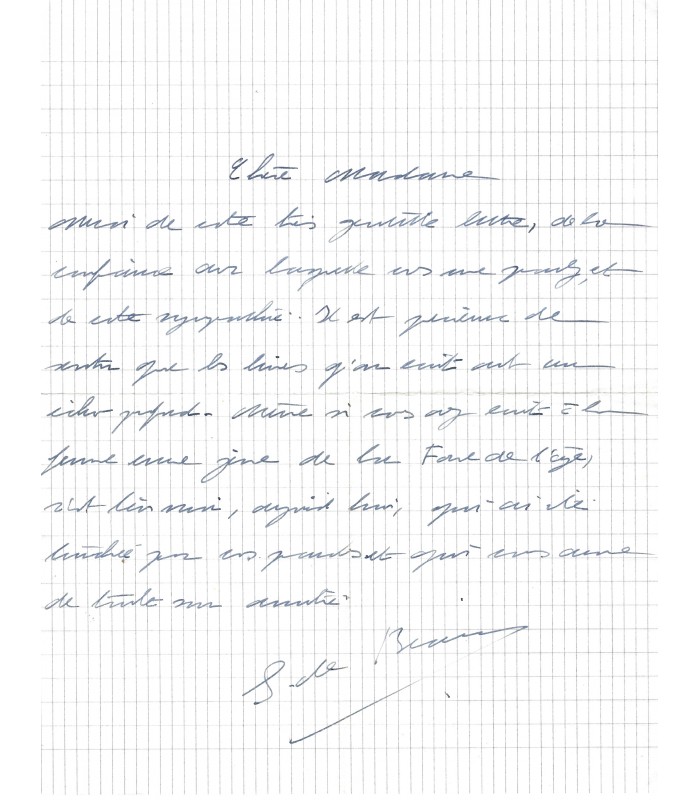 Chère Madame
Merci de cette très gentille lettre, de la
confiance avec laquelle vous me parlez, et
de cette sympathie. Il est précieux de
sentir que les livres qu'on écrit ont un
écho profond. Même si vous avez écrit à la
femme encore jeune de La Force de l'âge,
c'est bien moi, aujourd'hui, qui ai été
touchée par vos paroles et qui vous
de toute mon amitié.
S. de Beauvoir